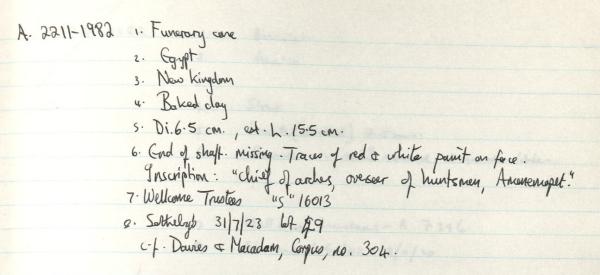 A. 2211-1982 1. Funerary cone
2. Egypt
3. New Kingdom
4. Baked clay
5. Di. 6.5 cm., ext. L. 15.5 cm.
6. End of shaft missing. Traces of red & white paint on face.
Inscription: "Chief of archers, overseer of huntsmen, Amenemopet."
7. Wellcome Trustees "S" 16013
8. Sotheby's 31/7/23 lot
c.f. Davies & Macadam, Corpus, no. 304.